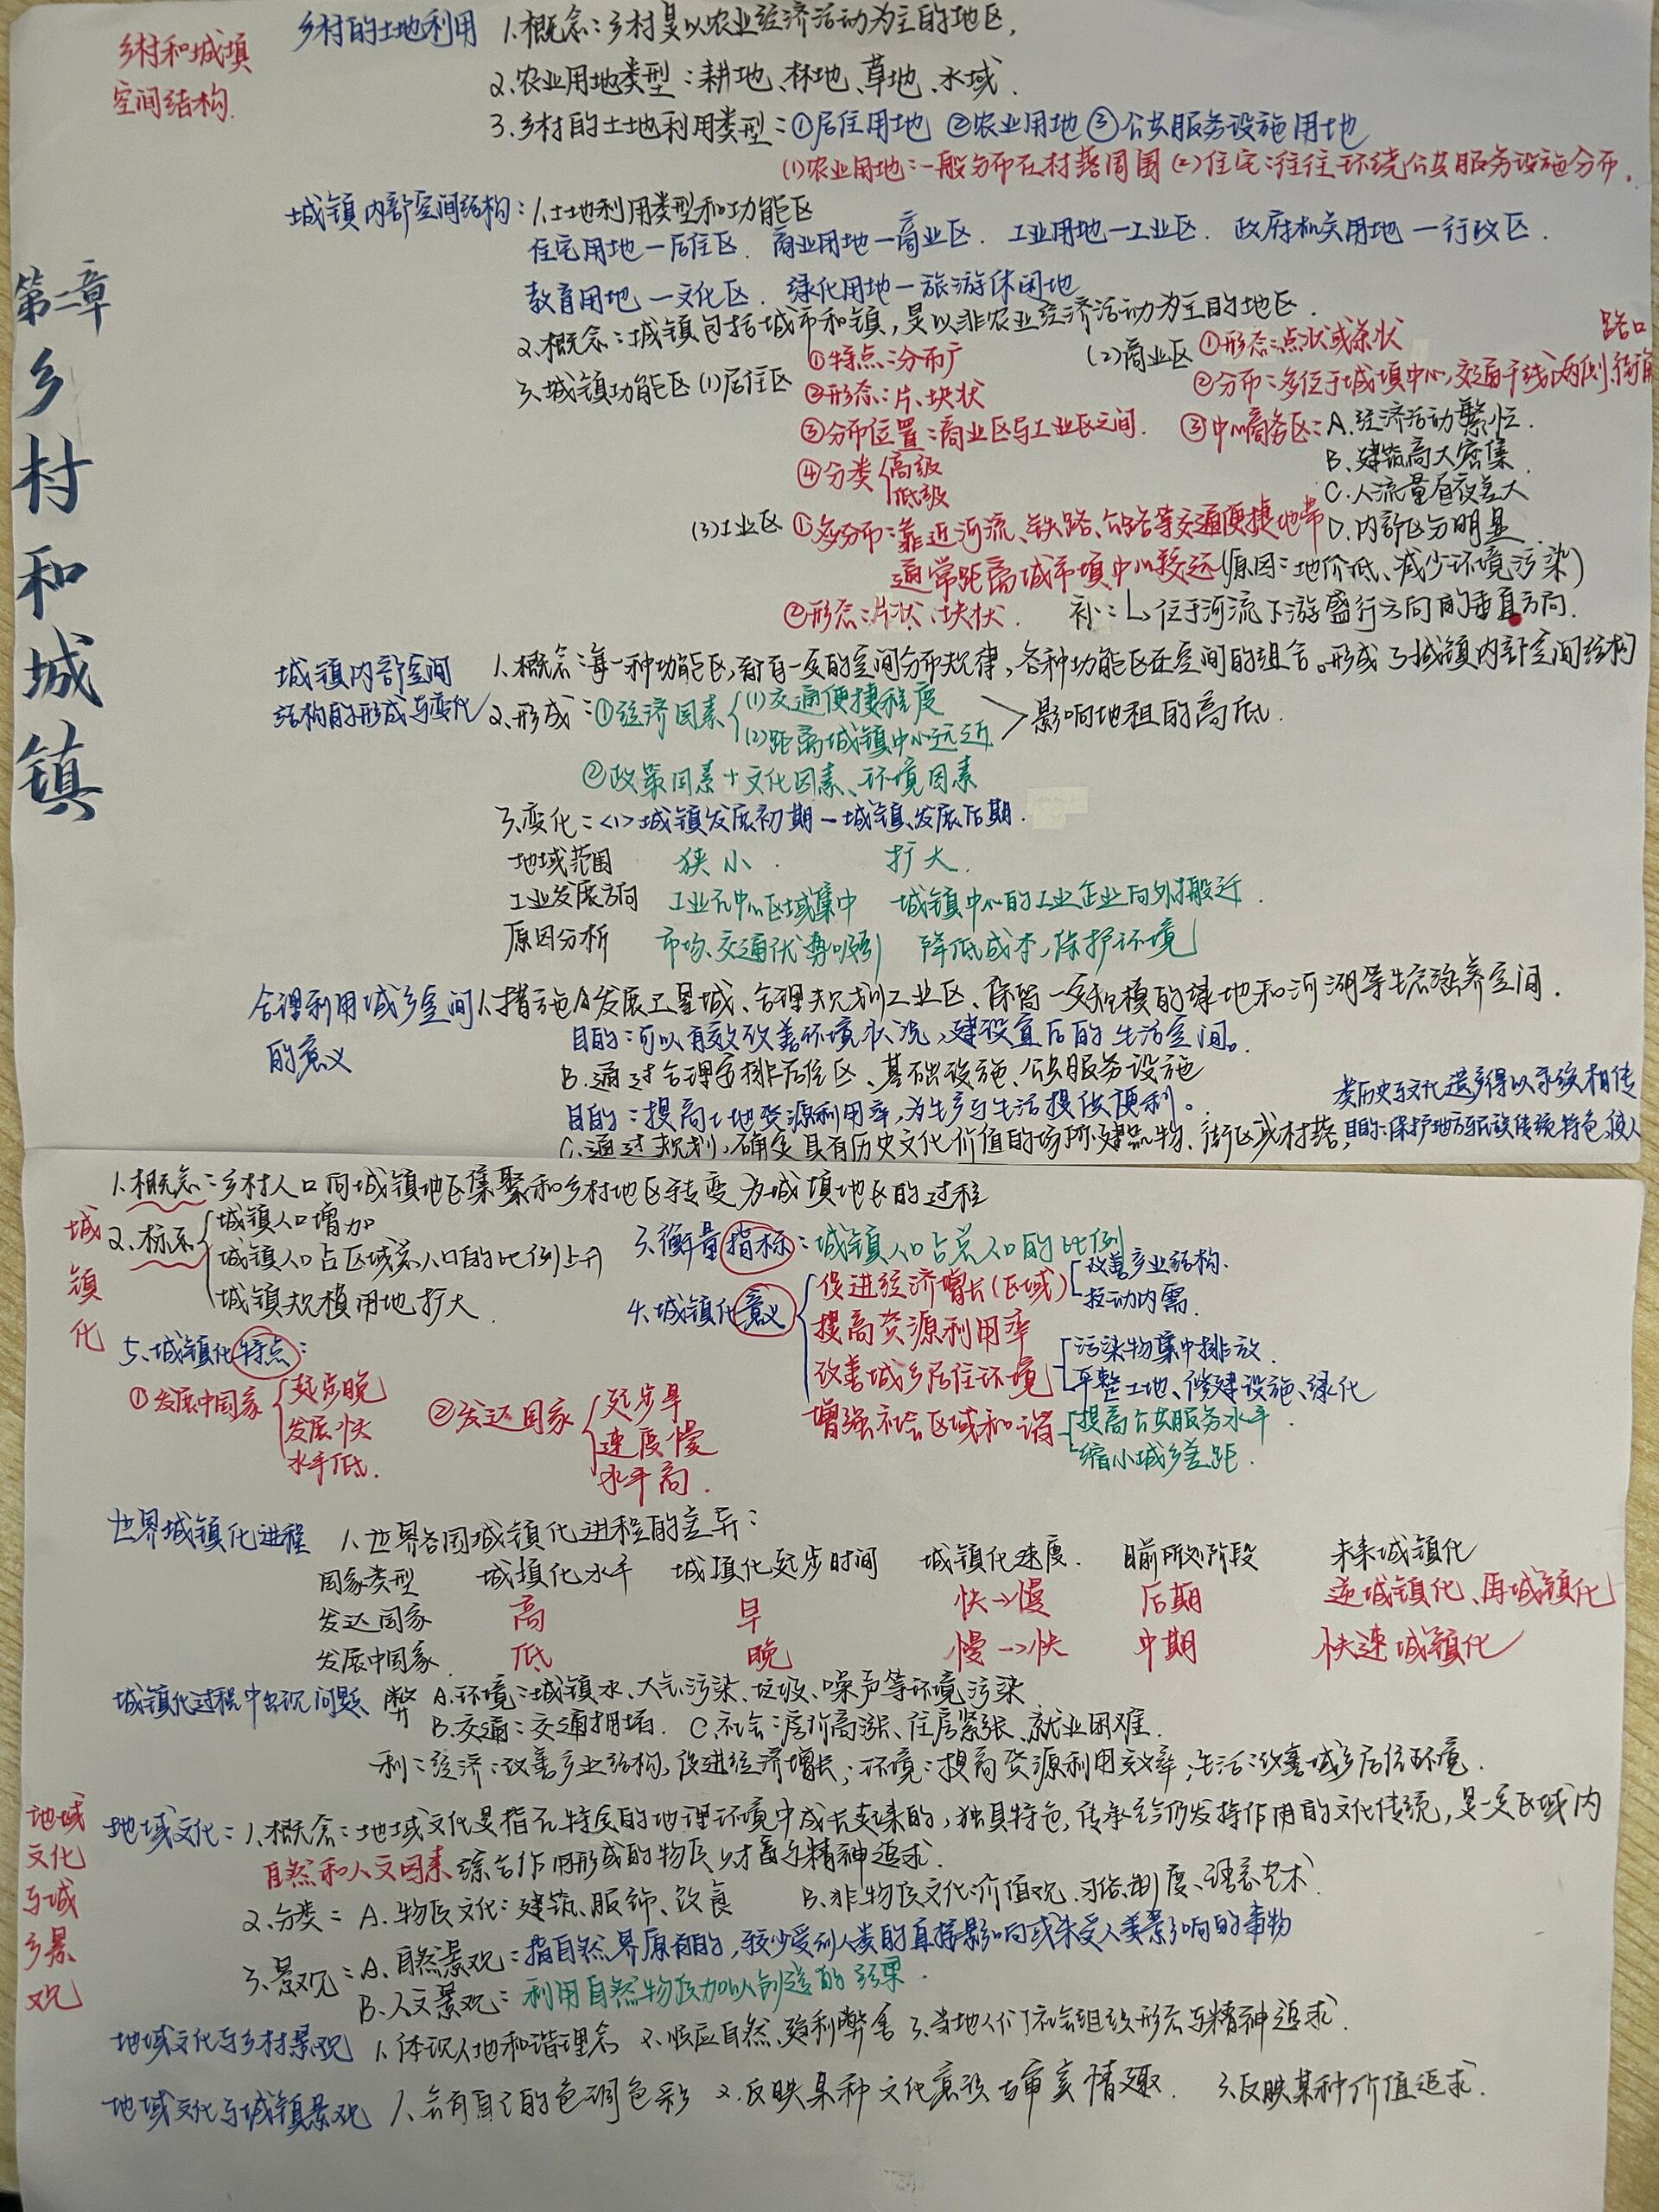 第二章 乡村和城镇
乡村和城填
空间结构.
乡村的土地利用 1.概念:乡村是以农业经济活动为主的地区.
2.农业用地类型:耕地、林地、草地、水域.
3.乡村的土地利用类型:①居住用地 ②农业用地 ③公共服务设施用地
(1)农业用地:一般分布在村落周围 (2)住宅:往往环绕公共服务设施分布.
城镇内部空间结构:1.土地利用类型和功能区
住宅用地—居住区. 商业用地—商业区. 工业用地—工业区. 政府机关用地—行政区.
教育用地—文化区. 绿化用地—旅游休闲地
2.概念:城镇包括城市和镇,是以非农业经济活动为主的地区.
3.城镇功能区 (1)居住区
①特点:分布广
②形态:片、块状
③分布位置:商业区与工业区之间.
④分类 高级
低级
(2)商业区 ①形态:点状或条状
②分布:多位于城填中心,交通干线两侧,街角
路口
③中心商务区:A.经济活动繁忙.
B.建筑高大密集.
C.人流量昼夜差大
D.内部区分明显.
(3)工业区 ①多分布:靠近河流、铁路、公路等交通便捷地带
通常距离城市填中心较远(原因:地价低、减少环境污染)
②形态:片状、块状. 补:位于河流下游盛行方向的垂直方向.
城镇内部空间
结构的形成与变化
1.概念:每一种功能区,都有一定的空间分布规律,各种功能区在空间的组合。形成了城镇内部空间结构
2.形成:①经济因素 (1)交通便捷程度
(2)距离城镇中心远近
影响地租的高低.
②政策因素+文化因素、环境因素
3.变化:<1>城镇发展初期—城镇发展后期.
地域范围 狭小. 扩大.
工业发展方向 工业在中心区域集中 城镇中心的工业企业向外搬迁.
原因分析 市场、交通优势吸引 降低成本,保护环境
合理利用城乡空间
的意义
1.措施A发展卫星城、合理规划工业区、保留一定规模的绿地和河湖等生态涵养空间.
目的:可以有效改善环境状况,建设宜居的生活空间。
B.通过合理安排居住区、基础设施、公共服务设施
目的:提高土地资源利用率,为生产与生活提供便利。
C.通过规划,确定具有历史文化价值的场所、建筑物、街区或村落,目的:保护地方与民族传统特色,使人
类历史与文化遗产得以永续相传
城镇化
1.概念:乡村人口向城镇地区集聚和乡村地区转变为城填地区的过程
2.标志 城镇人口增加
城镇人口占区域总人口的比例上升
城镇规模用地扩大.
3.衡量指标:城镇人口占总人口的比例
4.城镇化意义
促进经济增长(区域) 改善产业结构.
拉动内需.
提高资源利用率
改善城乡居住环境 污染物集中排放.
平整土地、修建设施、绿化
增强社会区域和谐 提高公共服务水平.
缩小城乡差距.
5.城镇化特点:
①发展中国家 起步晚
发展快
水平低.
②发达国家 起步早
速度慢
水平高.
世界城镇化进程 1.世界各国城镇化进程的差异:
国家类型 城填化水平 城填化起步时间 城镇化速度. 目前所处阶段 未来城镇化
发达国家 高 早 快→慢 后期 逆城镇化、再城镇化
发展中国家. 低 晚 慢→快 中期 快速城镇化
城镇化过程中出现问题、弊 A.环境:城镇水、大气污染、垃圾、噪声等环境污染.
B.交通:交通拥堵. C.社会:房价高涨、住房紧张、就业困难.
利:经济:改善产业结构,促进经济增长;环境:提高资源利用效率;生活:改善城乡居住环境.
地域文化与城乡景观
地域文化:1.概念:地域文化是指在特定的地理环境中成长起来的,独具特色,传承至今仍发挥作用的文化传统,是一定区域内
自然和人文因素综合作用形成的物质财富与精神追求.
2.分类:A.物质文化:建筑、服饰、饮食 B.非物质文化:价值观、习俗、制度、语言艺术.
3.景观:A.自然景观:指自然界原有的,较少受到人类的直接影响或未受人类影响的事物
B.人文景观:利用自然物质加以创造的结果.
地域文化与乡村景观 1.体现人地和谐理念 2.顺应自然、趋利弊害 3.当地人们社会组织形态与精神追求.
地域文化与城镇景观 1.会有自己的色调色彩 2.反映某种文化意识与审美情趣. 3.反映某种价值追求.